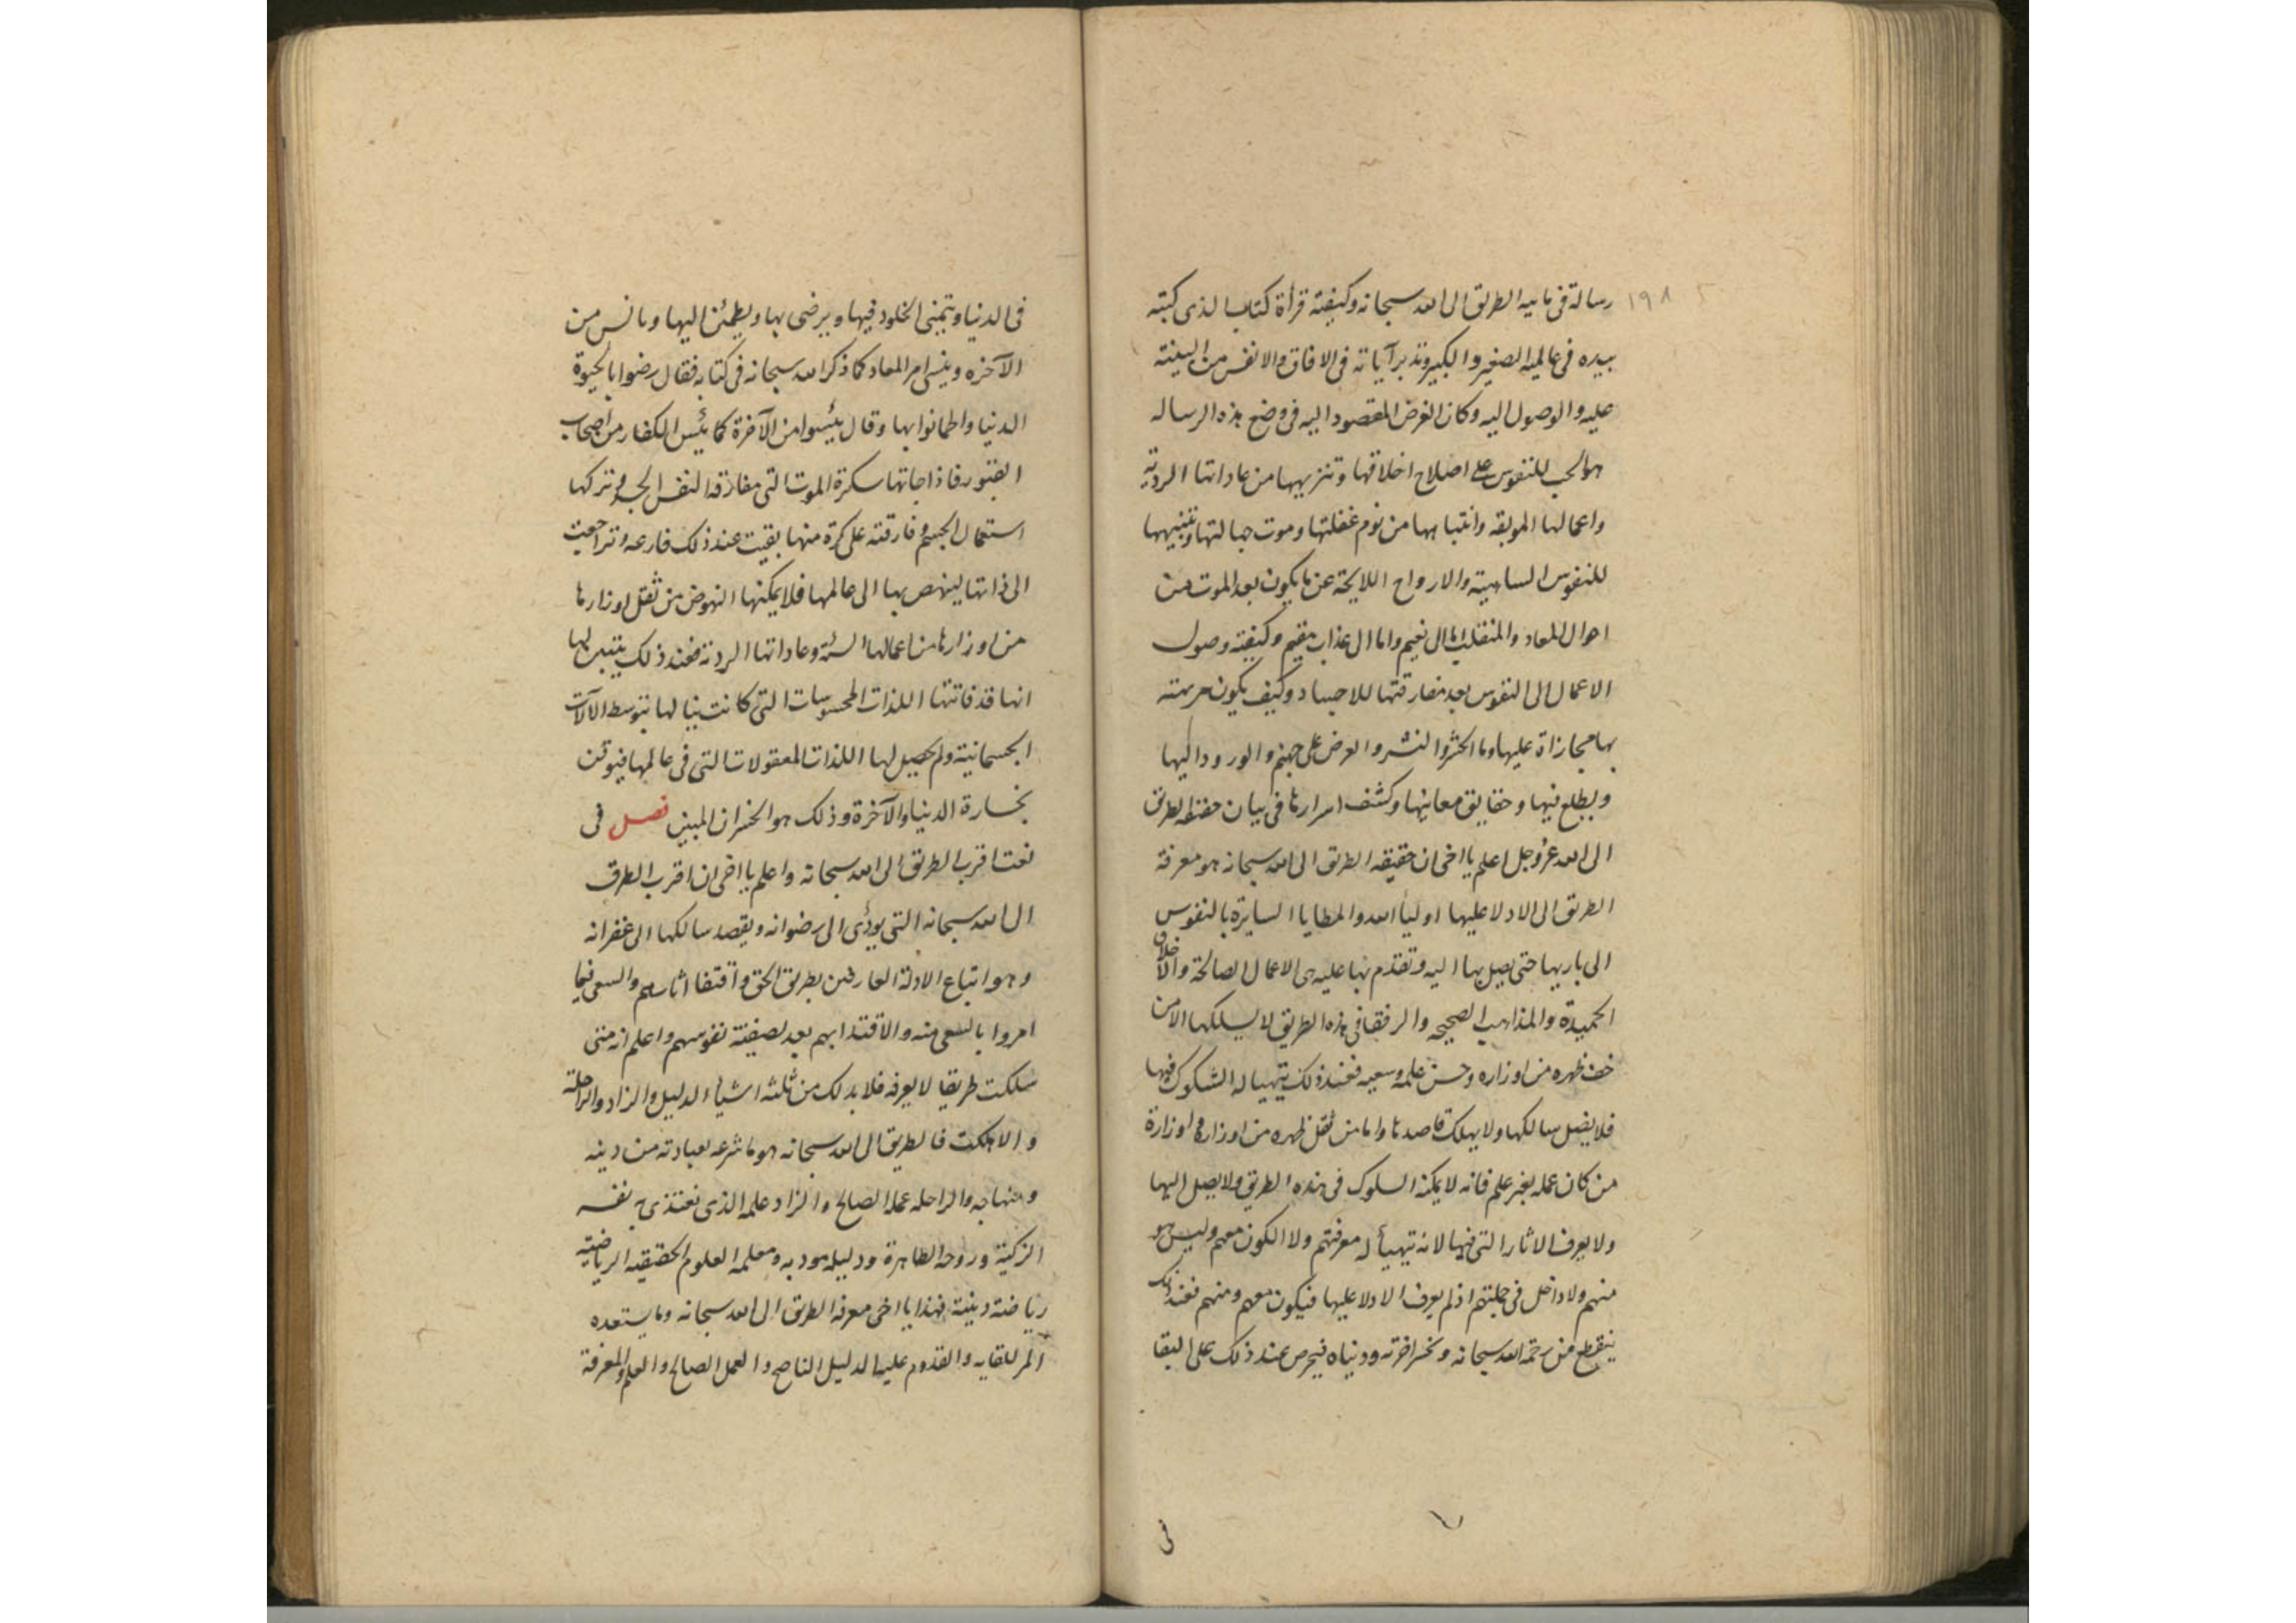 ١٩٨
رسالة فى مايیه الطريق الى الله سبحانه وكيفية قرأة كتاب الذى كتبه
بيده فى عالميه الصغير والكبير وتدبر آياته فى الافاق والانفس من البينة
عليه والوصول اليه وكان الغرض المقصود اليه فى وضع هذه الرساله
هو الحب للنفوس على اصلاح اخلاقها وتنزيهها من عاداتها الردية
واعمالها الموبقه وانتباهها من نوم غفلتها وموت جهالتها وتنبيهها
للنفوس الساهية والارواح اللايحة عن ما يكون بعد الموت من
احوال المعاد والمنقلب اما الى نعيم واما الى عذاب مقيم وكيفية وصول
الاعمال الى النفوس بعد مفارقتها للاجساد وكيف يكون
بها مجازاة عليها وما الحشر والنشر والعرض على جهنم والورود اليها
ويطلع فيها وحقايق معانيها وكشف اسرارها فى بيان حقيقة الطريق
الى الله عز وجل اعلم يا اخى ان حقيقه الطريق الى الله سبحانه هو معرفة
الطريق الى الادلا عليها اوليأ الله والمطايا السايرة بالنفوس
الى باريها حتى يصل بها اليه وتقدم بها عليه هى الاعمال الصالحة والاخلاق
الحميدة والمذاهب الصحيحه والرفقا فى هذه الطريق لا يسلكها الا من
خف ظهره من اوزاره وحسن علمه وسعيه فعند ذلك يتهيا له السكوك فيها
فلا يضل سالكها ولا يهلك قاصدها واما من ثقل ظهره من اوزاره اوزارة
من كان عمله بغير علم فانه لا يمكنه السلوك فى هذه الطريق ولا يصل اليها
ولا يعرف الاثار التى فيها لانه تهيأ له معرفتهم ولا الكون معهم وليس هو
منهم ولا داخل فى جملتهم اذ لم يعرف الادلا عليها فيكون معهم ومنهم فعند ذلك
ينقطع من رحمة الله سبحانه وخسر اخرته ودنياه فيحرص عند ذلك على البقا
فى
فى الدنيا ويتمنى الخلود فيها ويرضى بها ويطمئن اليها ويانس من
الآخره وينسى امر المعاد كما ذكر الله سبحانه فى كتابه فقال رضوا بالحيوة
الدنيا واطمانوا بها وقال يئسوا من الآخرة كما يئس الكفار من اصحاب
القبور فاذا جاتها سكرة الموت التى مفارقة النفس الجسد وتركها
استعمال الجسم وفارقته على كرة منها بقيت عند ذلك فارغه وتراجعت
الى ذاتها لينهض بها الى عالمها فلا يمكنها النهوض من ثقل اوزارها
من اوزارها من اعمالها السئة وعاداتها الردية فعند ذلك يتبين لها
انها قد فاتتها اللذات المحسوسات التى كانت ينالها بتوسط الآلات
الجسمانية ولم يحصل لها اللذات المعقولات التى فى عالمها فيوقن
بخسارة الدنيا والآخرة وذلك هو الخسران المبين فصل فى
نعت اقرب الطريق الى الله سبحانه واعلم يا اخى ان اقرب الطرق
الى الله سبحانه التى يؤدى الى رضوانه ويقصد سالكها الى غفرانه
وهو اتباع الادلة العارفين بطريق الحق واقتفا اثارهم والسعى فيما
امروا بالسعى منه والاقتدا بهم بعد تصفية نفوسهم واعلم انه متى
سلكت طريقا لا يعرفه فلا بد لك من ثلثه اشياء الدليل والزاد والراحلة
والا هلكت فالطريق الى الله سبحانه هو ما شرعه لعبادته من دينه
ومنهاجه والراحله عمله الصالح والزاد علمه الذى تغتذى به نفسه
الزكية وروحه الطاهرة ودليله مودبه ومعلمه العلوم الحقيقيه الرياضية
رياضة دينية فهذا يا اخى معرفة الطريق الى الله سبحانه وما يستعده
المر للقايه والقدوم عليه الدليل الناصح والعمل الصالح والعلم والمعرفة